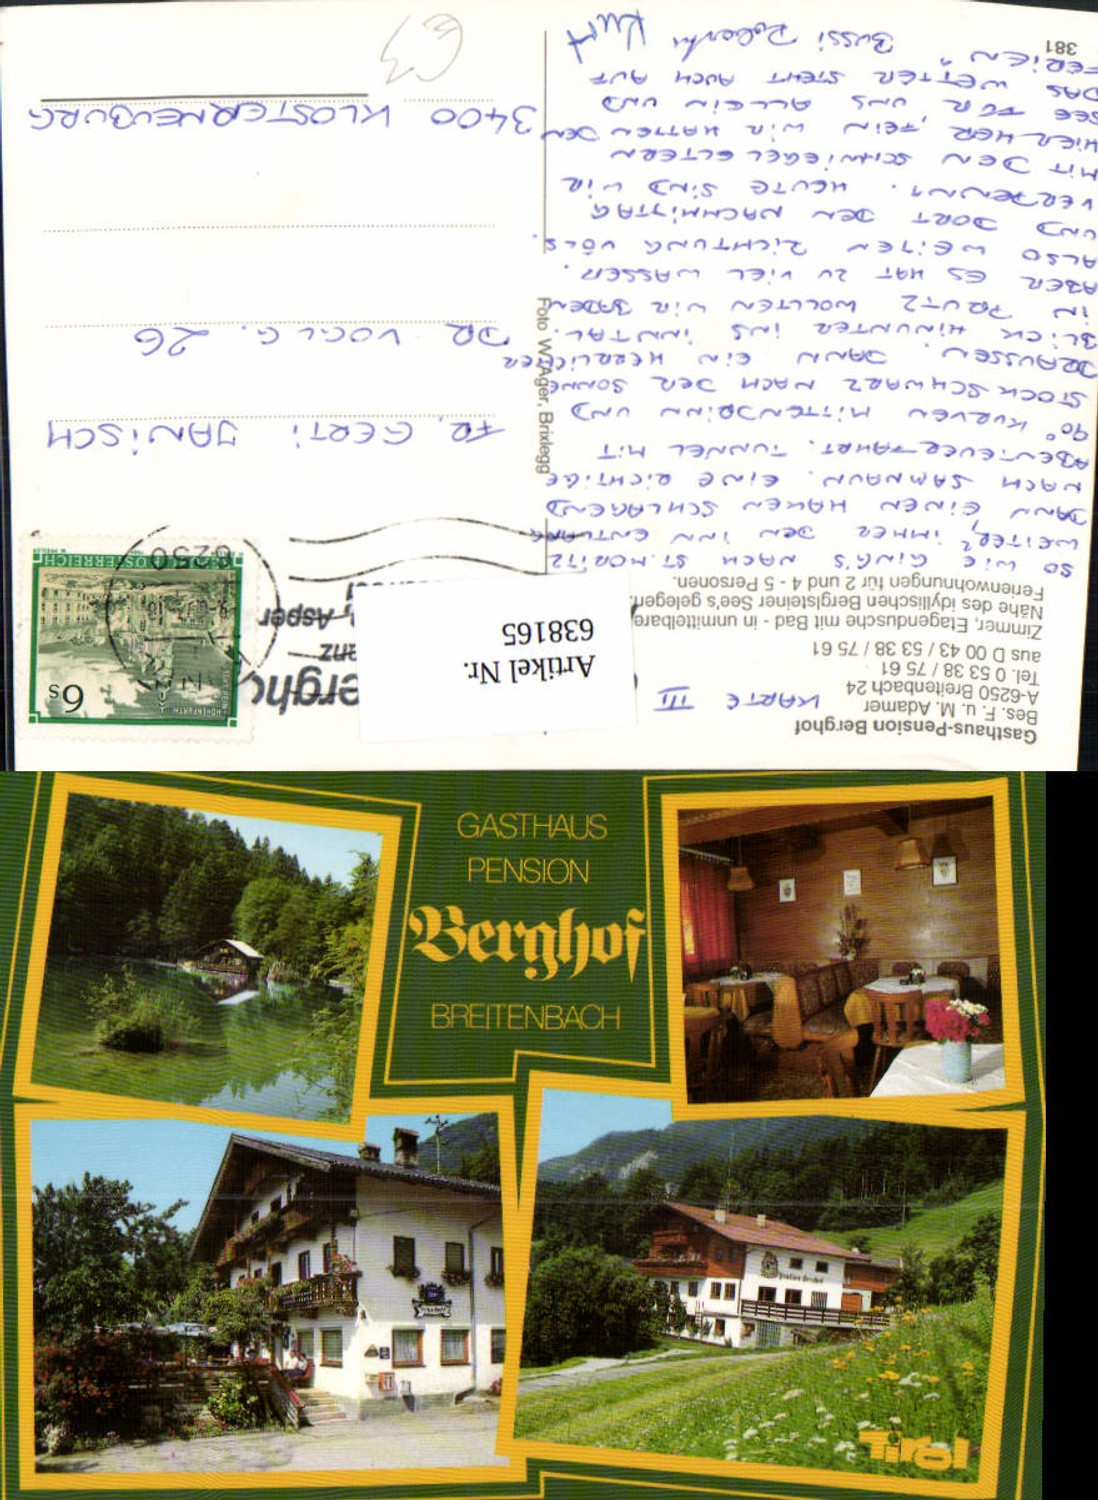 Gasthaus-Pension Berghof
Bes. F. u. M. Adamer
A-6250 Breitenbach 24
Tel. 0 53 38 / 75 61
aus D 00 43 / 53 38 / 75 61
Zimmer, Etagendusche mit Bad - in unmittelbare
Nähe des idyllischen Berglsteiner See's gelegen.
Ferienwohnungen für 2 und 4 - 5 Personen.
KARTE III
SO WIE GING'S NACH ST. MORITZ
WEITER, IMMER DEN INN ENTLANG
DANN EINEN HAKEN SCHLAGEND
NACH SAMNAUN. EINE RICHTIGE
ABENTEUERFAHRT. TUNNEL MIT
90° KURVEN MITTENDRINN UND
STOCKSCHWARZ NACH DER SONNE
DRAUSSEN. DANN EIN HERRLICHER
BLICK HINUNTER INS INNTAL.
IN PRUTZ WOLLTEN WIR BADEN
ABER ES HAT ZU VIEL WASSER.
ALSO WEITER RICHTUNG VÖLS.
UND DORT DEN NACHMITTAG
VERPENNT. HEUTE SIND WIR
MIT DEN SCHWIEGELELTERN
HIERHER, FEIN, WIR HATTEN DEN
SEE FÜR UNS ALLEIN UND
DAS WETTER STEHT AUCH AUF
"FERIEN"
BUSSI
Kurt
381
Foto W. Ager, Brixlegg
Artikel Nr.
638165
6s
REPUBLIK ÖSTERREICH
6250
FR. GERTI JANISCH
DR VOGL G. 26
3400 KLOSTERNEUBURG
GASTHAUS
PENSION
Berghof
BREITENBACH
Pension Berghof
Tirol